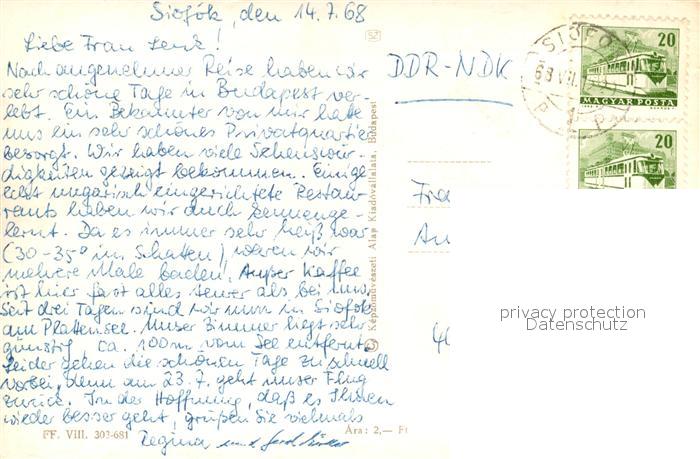 Siofók, den 14.7.68
Liebe Frau Lenk!
Nach angenehmer Reise haben wir
sehr schöne Tage in Budapest ver-
lebt. Ein Bekannter von mir hatte
uns ein sehr schönes Privatquartier
besorgt. Wir haben viele Sehenswür-
digkeiten gezeigt bekommen. Einige
echt ungarisch eingerichtete Restau-
rants haben wir auch kennenge-
lernt. Da es immer sehr heiß war
(30-35° im Schatten), waren wir
mehrere Male baden. Außer Kaffee
ist hier fast alles teurer als bei uns.
Seit drei Tagen sind wir nun in Siofók
am Plattensee. Unser Zimmer liegt sehr
günstig, ca. 100m vom See entfernt.
Leider gehen die schönen Tage zu schnell
vorbei, denn am 23.7. geht unser Flug
zurück. In der Hoffnung, daß es Ihnen
wieder besser geht, grüßen Sie vielmals
Regina und
FF. VIII. 303-681
Ára: 2,— Ft
© Képzőművészeti Alap Kiadóvállalata, Budapest
DDR-NDK
SIÓFO
68 VII. 1
20
MAGYAR POSTA
20
Fra
An
privacy protection
Datenschutz